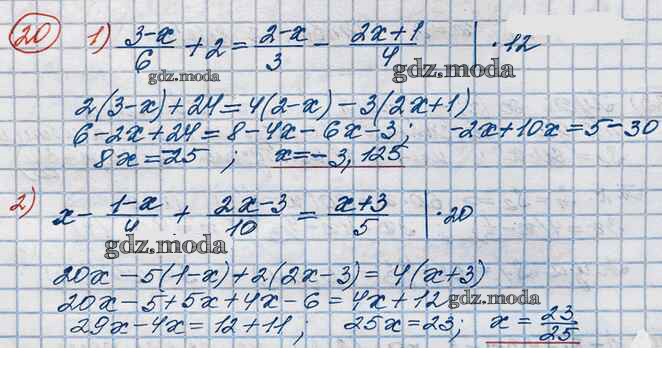 20 1) (3-x)/6 + 2 = (2-x)/3 - (2x+1)/4 | ·12
gdz.moda
gdz.moda
2(3-x)+24=4(2-x)-3(2x+1)
6-2x+24=8-4x-6x-3; -2x+10x=5-30
8x=-25 ; x=-3,125
2) x - (1-x)/4 + (2x-3)/10 = (x+3)/5 | ·20
gdz.moda
20x-5(1-x)+2(2x-3)=4(x+3)
20x-5+5x+4x-6=4x+12
gdz.moda
29x-4x=12+11; 25x=23; x=23/25